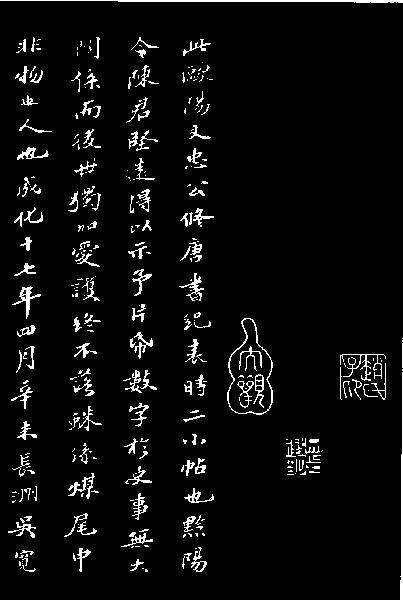 此歐陽文忠公修唐書紀表時二小帖也黔陽
令陳君堅遠得以示予片帋數字於史事無大
關係而後世獨加愛護終不落蛛絲煤尾中
非物也人也成化十七年四月辛未長洲吳寬
趙氏子昂
大觀